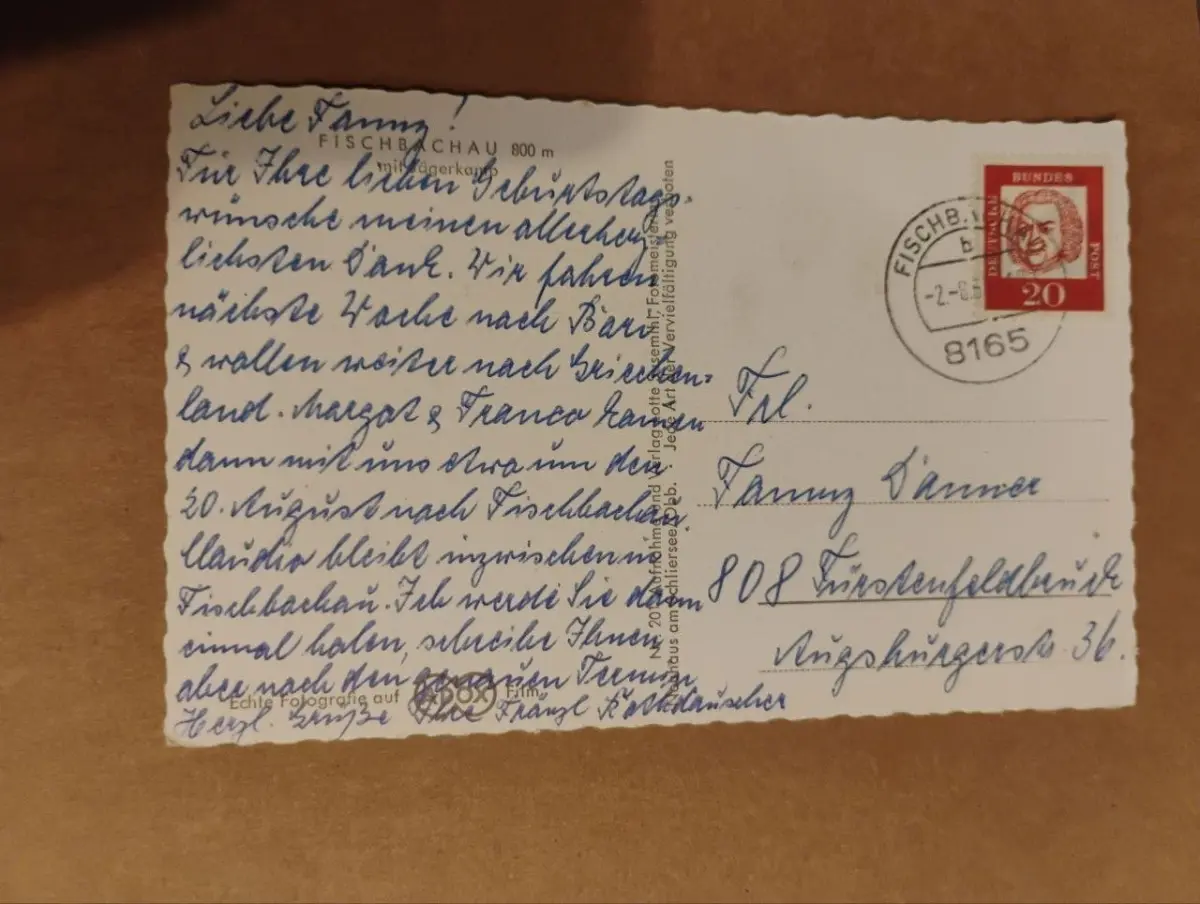 Liebe Fanny!
FISCHBACHAU 800 m
mit Jägerkamp
Für Ihre lieben Geburtstags-
wünsche meinen allerherz-
lichsten Dank. Wir fahren
nächste Woche nach Bari
& wollen weiter nach Griechen=
land. Margot & Franco kommen
dann mit uns etwa um den
20. August nach Fischbachau.
Claudio bleibt inzwischen in
Fischbachau. Ich werde Sie dann
einmal holen, schreibe Ihnen
aber noch den genauen Termin
Echte Fotografie auf Film
Herzl. Grüße Ihre Fränzl
Nr. 20 Aufnahme und Verlag Lotte Fotomeisterin
haus am Schliersee/Obb. · Jede Art der Vervielfältigung verboten
DEUTSCHE BUNDES POST
20
FISCHBACHAU
b
-2.-8.
8165
Frl.
Fanny Danner
808 Fürstenfeldbruck
Augsburgerstr. 36.